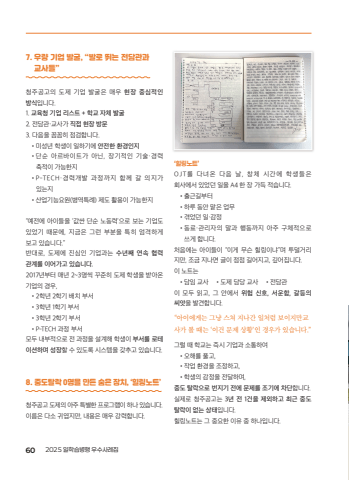 7. 우량 기업 발굴, "발로 뛰는 전담관과
교사들"
청주공고의 도제 기업 발굴은 매우 현장 중심적인
방식입니다.
1. 교육청 기업 리스트 + 학교 자체 발굴
2. 전담관·교사가 직접 현장 방문
3. 다음을 꼼꼼히 점검합니다.
• 미성년 학생이 일하기에 안전한 환경인지
• 단순 아르바이트가 아닌, 장기적인 기술·경력
축적이 가능한지
• P-TECH·경력개발 과정까지 함께 갈 의지가
있는지
• 산업기능요원(병역특례) 제도 활용이 가능한지
"예전에 아이들을 '값싼 단순 노동력'으로 보는 기업도
있었기 때문에, 지금은 그런 부분을 특히 엄격하게
보고 있습니다."
반대로, 도제에 진심인 기업과는 수년째 연속 협력
관계를 이어가고 있습니다.
2017년부터 매년 2~3명씩 꾸준히 도제 학생을 받아온
기업의 경우,
• 2학년 2학기 배치 부서
• 3학년 1학기 부서
• 3학년 2학기 부서
• P-TECH 과정 부서
모두 내부적으로 전 과정을 설계해 학생이 부서를 로테
이션하며 성장할 수 있도록 시스템을 갖추고 있습니다.
8. 중도탈락 0명을 만든 숨은 장치, '힐링노트'
청주공고 도제의 아주 특별한 프로그램이 하나 있습니다.
이름은 다소 귀엽지만, 내용은 매우 강력합니다.
'힐링노트'
OJT를 다녀온 다음 날, 창체 시간에 학생들은
회사에서 있었던 일을 A4 한 장 가득 적습니다.
• 출근길부터
• 하루 동안 맡은 업무
• 겪었던 일·감정
• 동료·관리자의 말과 행동까지 아주 구체적으로
쓰게 합니다.
처음에는 아이들이 "이게 무슨 힐링이냐"며 투덜거리
지만, 조금 지나면 글이 점점 길어지고, 깊어집니다.
이 노트는
• 담임 교사 • 도제 담당 교사 • 전담관
이 모두 읽고, 그 안에서 위험 신호, 서운함, 갈등의
씨앗을 발견합니다.
"아이에게는 그냥 스쳐 지나간 일처럼 보이지만 교
사가 볼 때는 '이건 문제 상황'인 경우가 있습니다."
그럴 때 학교는 즉시 기업과 소통하여
• 오해를 풀고,
• 작업 환경을 조정하고,
• 학생의 감정을 전달하며,
중도 탈락으로 번지기 전에 문제를 조기에 차단합니다.
실제로 청주공고는 3년 전 1건을 제외하고 최근 중도
탈락이 없는 상태입니다.
힐링노트는 그 중요한 이유 중 하나입니다.
60 2025 일학습병행 우수사례집